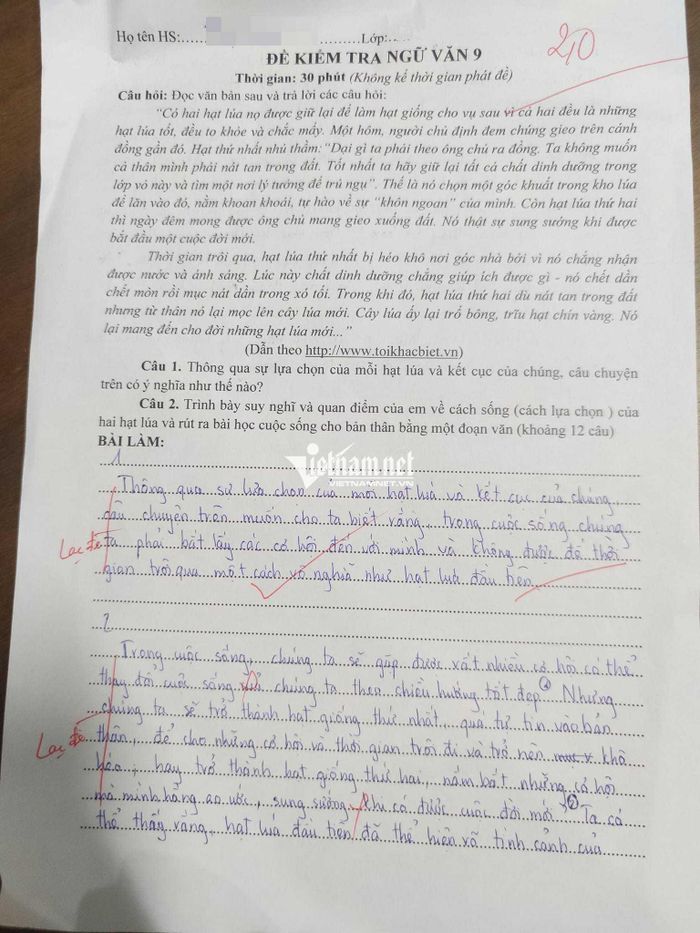 Họ tên HS:..... ..........Lớp:.....
2,0
ĐỀ KIỂM TRA NGỮ VĂN 9
Thời gian: 30 phút (Không kể thời gian phát đề)
Câu hỏi: Đọc văn bản sau và trả lời các câu hỏi:
"Có hai hạt lúa nọ được giữ lại để làm hạt giống cho vụ sau vì cả hai đều là những
hạt lúa tốt, đều to khỏe và chắc mẩy. Một hôm, người chủ định đem chúng gieo trên cánh
đồng gần đó. Hạt thứ nhất nhủ thầm: "Dại gì ta phải theo ông chủ ra đồng. Ta không muốn
cả thân mình phải nát tan trong đất. Tốt nhất ta hãy giữ lại tất cả chất dinh dưỡng trong
lớp vỏ này và tìm một nơi lý tưởng để trú ngụ". Thế là nó chọn một góc khuất trong kho lúa
để lăn vào đó, nằm khoan khoái, tự hào về sự "khôn ngoan" của mình. Còn hạt lúa thứ hai
thì ngày đêm mong được ông chủ mang gieo xuống đất. Nó thật sự sung sướng khi được
bắt đầu một cuộc đời mới.
Thời gian trôi qua, hạt lúa thứ nhất bị héo khô nơi góc nhà bởi vì nó chẳng nhận
được nước và ánh sáng. Lúc này chất dinh dưỡng chẳng giúp ích được gì - nó chết dần
chết mòn rồi mục nát dần trong xó tối. Trong khi đó, hạt lúa thứ hai dù nát tan trong đất
nhưng từ thân nó lại mọc lên cây lúa mới. Cây lúa ấy lại trổ bông, trĩu hạt chín vàng. Nó
lại mang đến cho đời những hạt lúa mới..."
(Dẫn theo http://www.toikhacbiet.vn)
Câu 1. Thông qua sự lựa chọn của mỗi hạt lúa và kết cục của chúng, câu chuyện
trên có ý nghĩa như thế nào?
Câu 2. Trình bày suy nghĩ và quan điểm của em về cách sống (cách lựa chọn ) của
hai hạt lúa và rút ra bài học cuộc sống cho bản thân bằng một đoạn văn (khoảng 12 câu)
BÀI LÀM:
Vietnam.net
VIETNAMNET.VN
1
Thông qua sự lựa chọn của mỗi hạt lúa và kết cục của chúng,
câu chuyện trên muốn cho ta biết rằng, trong cuộc sống chúng
Lạc đề ta phải bắt lấy các cơ hội đến với mình và không được để thời
gian trôi qua một cách vô nghĩa như hạt lúa đầu tiên.
2
Trong cuộc sống, chúng ta sẽ gặp được rất nhiều cơ hội có thể
thay đổi cuộc sống của chúng ta theo chiều hướng tốt đẹp. Nhưng
chúng ta sẽ trở thành hạt giống thứ nhất, quá tự tin vào bản
Lạc đề thân, để cho những cơ hội và thời gian trôi đi và trở nên khô
héo, hay trở thành hạt giống thứ hai, nắm bắt những cơ hội
mà mình hằng ao ước, sung sướng khi có được cuộc đời mới? Ta có
thể thấy rằng, hạt lúa đầu tiên đã thể hiện rõ tình cảnh của